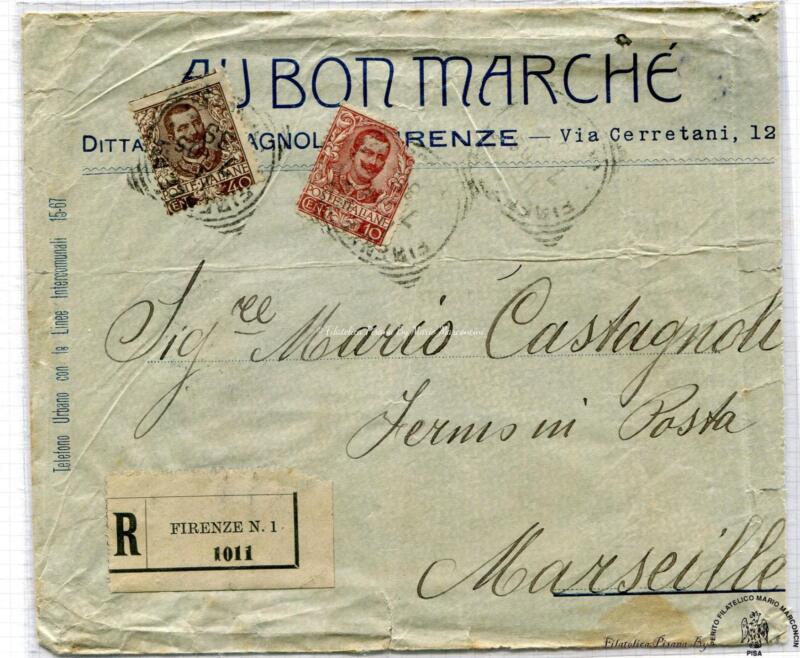 AU BON MARCHÉ
DITTA AGNOL FIRENZE — Via Cerretani, 12
Telefono Urbano con le Linee Intercomunali 15-67
POSTE ITALIANE
CENT. 40
POSTE ITALIANE
CENT. 10
Sig.re Mario Castagnoli
Fermo in Posta
Marseille
R
FIRENZE N. 1
1011
Filatelica Pisana By Mario Marconcini
Filatelica Pisana By
PERITO FILATELICO MARIO MARCONCINI
PISA